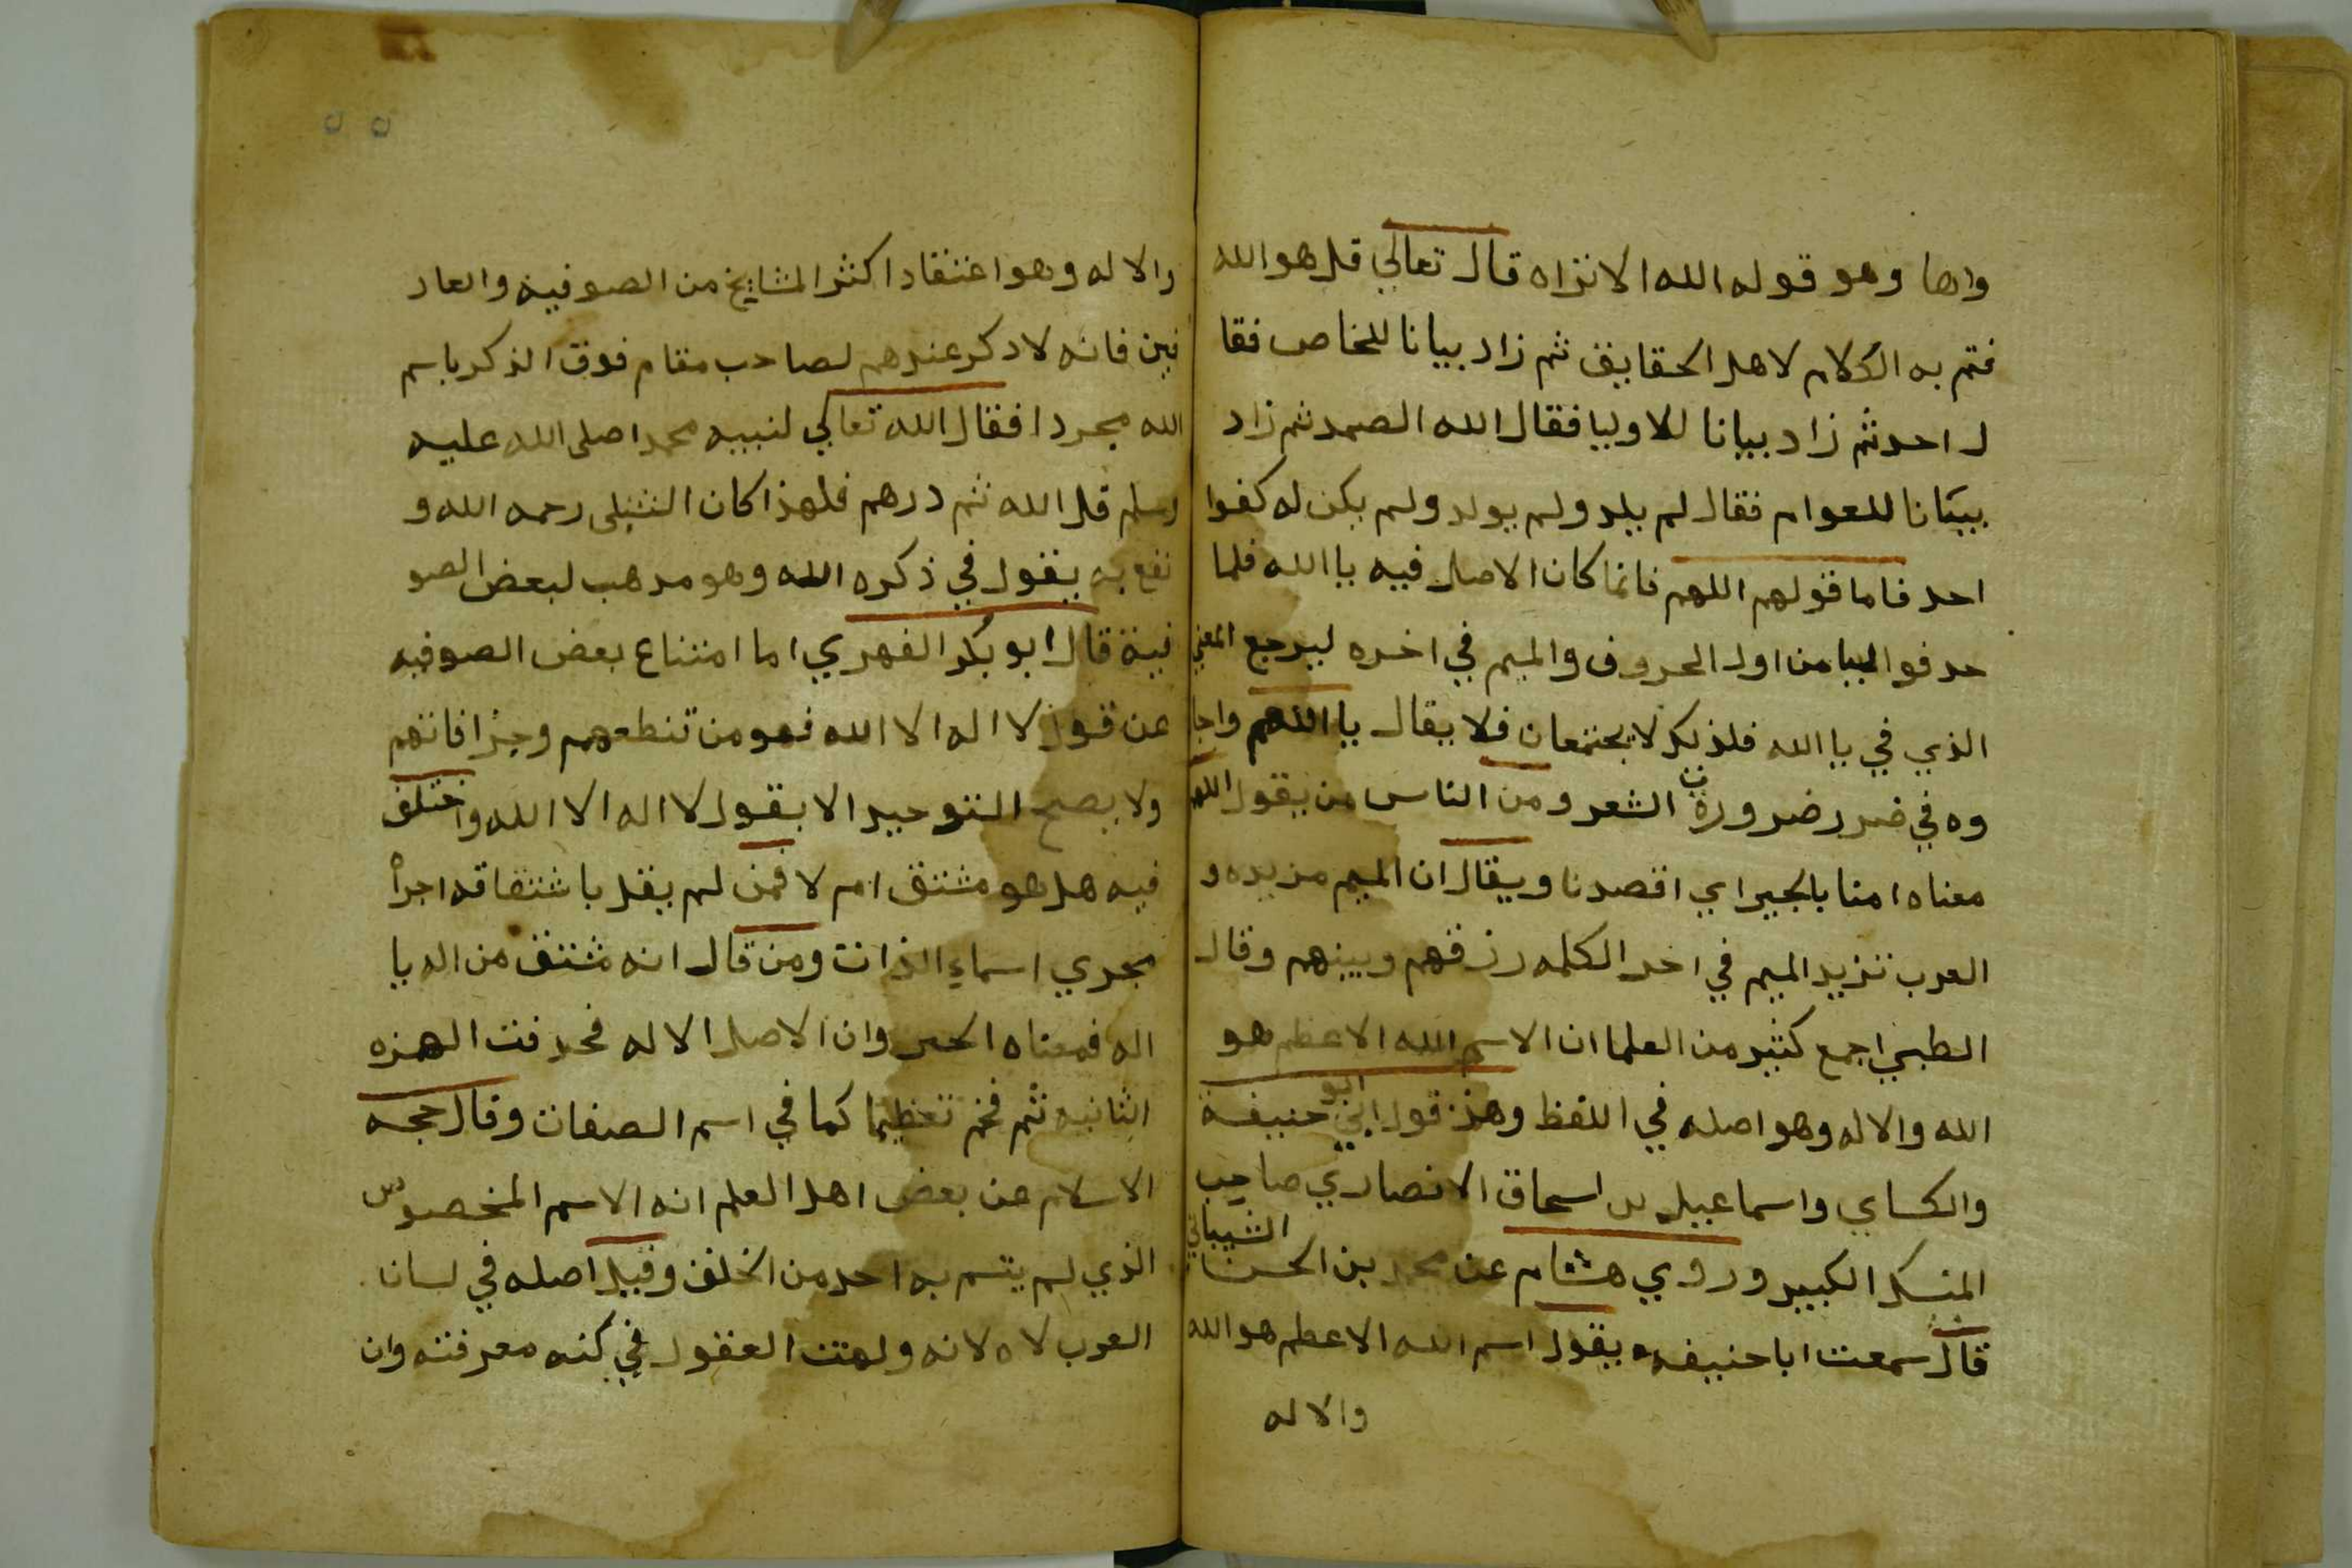 وهو قوله الله الا تراه قال تعالي قل هو الله
فتم به الكلام لاهل الحقايق ثم زاد بيانا للخاص فقا
ل احد ثم زاد بيانا للاوليا فقال الله الصمد ثم زاد
بيانا للعوام فقال لم يلد ولم يولد ولم يكن له كفوا
احد فاما قولهم اللهم فانما كان الاصل فيه يا الله فلما
حدفوا اليا من اول الحروف والميم في اخره ليرجع المعني
الذي في يا الله فلذلك لا يجتمعان فلا يقال يا اللهم واجا
وه في ضرر ضرورة الشعر ومن الناس من يقول اللهم
معناه امنا بالخير اي اقصدنا ويقال ان الميم مزيده و
العرب تزيد الميم في اخر الكلمه وقال
الطبي اجمع كثير من العلما ان الاسم الله الاعظم هو
الله والاله وهو اصله في اللفظ وهذ قول ابي ابو حنيفة
والكساي واسماعيل بن اسحاق الانصاري صاحب
الكبير وروي هشام عن محمد بن الحسن الشيباني
قال سمعت ابا حنيفه يقول اسم الله الاعظم هو الله
والاله
والاله وهو اعتقاد اكثر المشايخ من الصوفيه والعار
فين فانه لا دكر عندهم لصاحب مقام فوق الذكر باسم
الله مجردا فقال الله تعالي لنبيه محمدا صلى الله عليه
وسلم قل الله ثم درهم فلهذا كان الشبلى رحمه الله و
نفع به يقول في ذكره الله وهو مدهب لبعض الصو
فية قال ابو بكر الفهري اما امتناع بعض الصوفيه
عن قول لا اله الا الله فهو من تنطعهم فانهم
ولا يصح التوحيد الا بقول لا اله الا الله واختلف
فيه هل هو مشتق ام لا فمن لم يقل باشتقاقه اجراه
مجري اسماء الذات ومن قال انه مشتق من اله يا
اله فمعناه وان الاصل الاله فحدفت الهمزه
الثانيه ثم فخم تعظيما كما في اسم الصفات وقال حجه
الاسلام عن بعض اهل العلم انه الاسم المخصوص
الذي لم يتسم به احد من الخلق وقيل اصله في لسان
العرب لاه لانه ولهت العقول في كنه معرفته وان